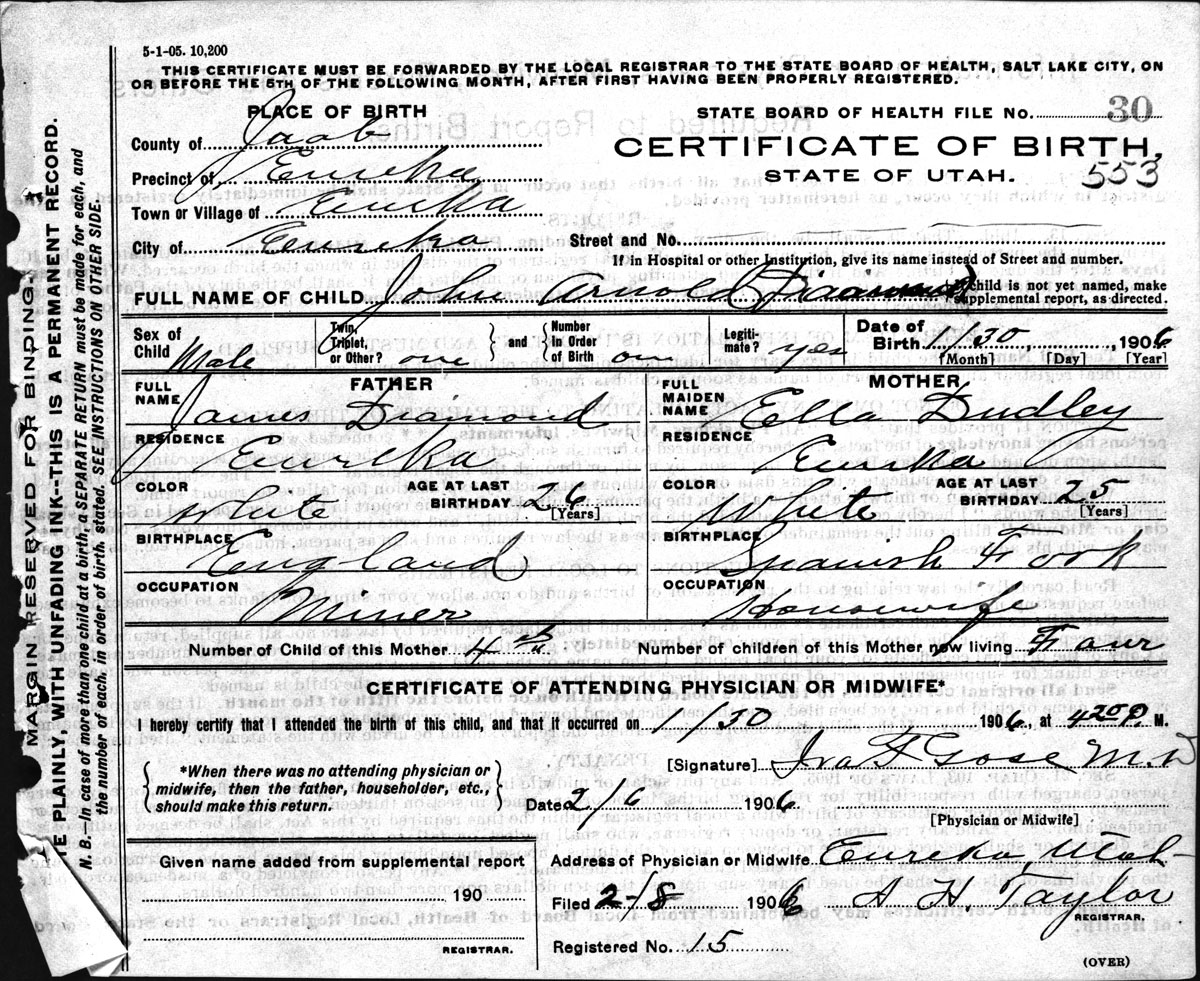 5-1-05. 10,200
THIS CERTIFICATE MUST BE FORWARDED BY THE LOCAL REGISTRAR TO THE STATE BOARD OF HEALTH, SALT LAKE CITY, ON
OR BEFORE THE 5TH OF THE FOLLOWING MONTH, AFTER FIRST HAVING BEEN PROPERLY REGISTERED.
PLACE OF BIRTH
County of Juab
Precinct of Eureka
Town or Village of Eureka
City of Eureka
STATE BOARD OF HEALTH FILE No. 30
CERTIFICATE OF BIRTH,
STATE OF UTAH. 553
Street and No.
If in Hospital or other Institution, give its name instead of Street and number.
FULL NAME OF CHILD John Arnold Diamond
child is not yet named, make
supplemental report, as directed.
Sex of Child Male
Twin, Triplet, or Other? one
and Number in Order of Birth one
Legiti- mate? yes
Date of Birth 1/30, 1906
[Month] [Day] [Year]
FATHER
FULL NAME James Diamond
RESIDENCE Eureka
COLOR White
AGE AT LAST BIRTHDAY 26 [Years]
BIRTHPLACE England
OCCUPATION Miner
MOTHER
FULL MAIDEN NAME Ella Dudley
RESIDENCE Eureka
COLOR White
AGE AT LAST BIRTHDAY 25 [Years]
BIRTHPLACE Spanish Fork
OCCUPATION Housewife
Number of Child of this Mother 4th
Number of children of this Mother now living Four
CERTIFICATE OF ATTENDING PHYSICIAN OR MIDWIFE*
I hereby certify that I attended the birth of this child, and that it occurred on 1/30 1906, at 4 20 P. M.
*When there was no attending physician or
midwife, then the father, householder, etc.,
should make this return.
[Signature] Ira F Gose M.D
Date 2/6 1906
[Physician or Midwife]
Given name added from supplemental report
190
REGISTRAR.
Address of Physician or Midwife Eureka, Utah
Filed 2/8 1906 A H. Taylor
REGISTRAR.
Registered No. 15
(OVER)
MARGIN RESERVED FOR BINDING.
PLAINLY, WITH UNFADING INK--THIS IS A PERMANENT RECORD.
N. B.—In case of more than one child at a birth, a SEPARATE RETURN must be made for each, and
the number of each, in order of birth, stated. SEE INSTRUCTIONS ON OTHER SIDE.